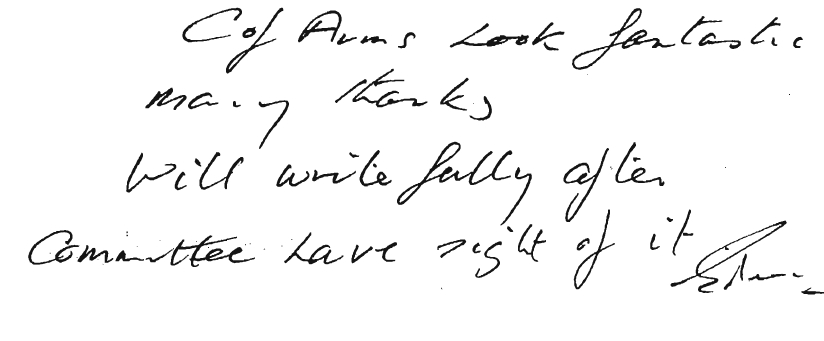 C of Arms Look fantastic
many thanks
Will write fully after
Committee have sight of it